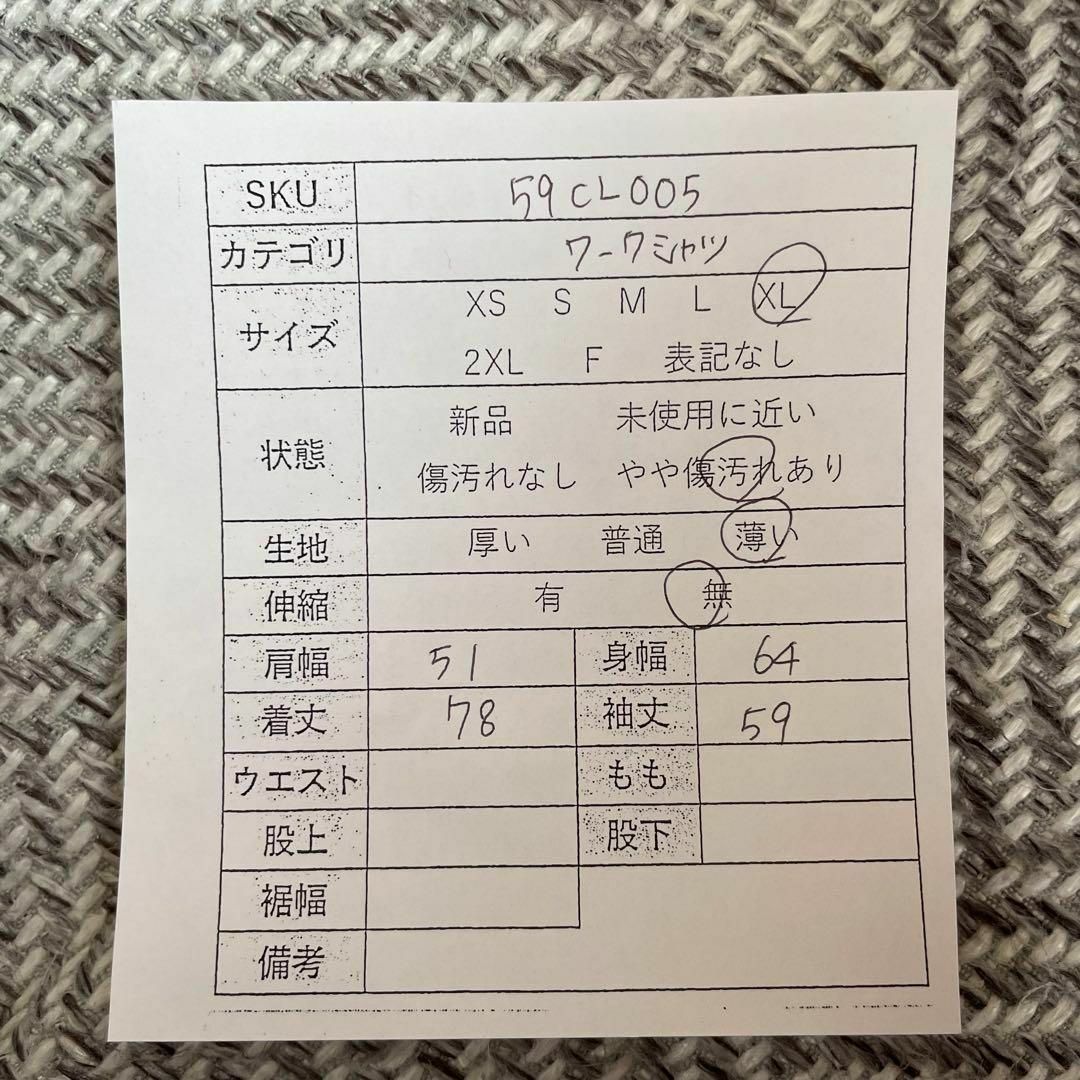 SKU 59CL005
カテゴリ ワークシャツ
サイズ XS S M L XL
2XL F 表記なし
状態 新品 未使用に近い
傷汚れなし やや傷汚れあり
生地 厚い 普通 薄い
伸縮 有 無
肩幅 51 身幅 64
着丈 78 袖丈 59
ウエスト もも
股上 股下
裾幅
備考